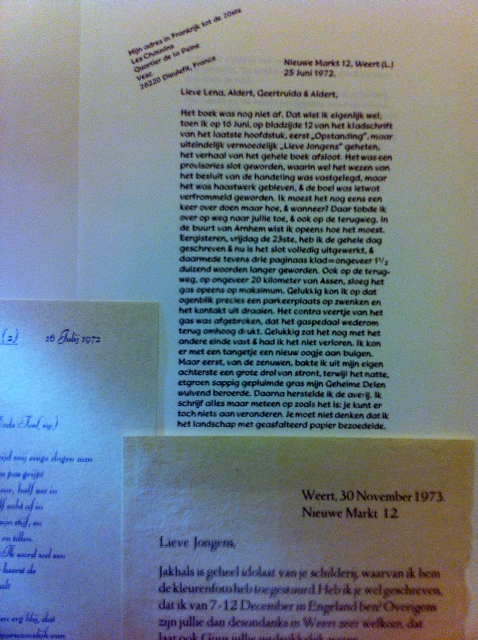 Mijn adres in Frankrijk tot de 20ste
Les Chauvins
Quartier de la Peine
Vesc
26220 Dieulefit, France
Nieuwe Markt 12, Weert (L.)
25 Juni 1972.
Lieve Lena, Aldert, Geertruida & Aldert,
Het boek was nog niet af. Dat wist ik eigenlijk wel,
toen ik op 16 Juni, op bladzijde 12 van het kladschrift
van het laatste hoofdstuk, eerst „Opstanding”, maar
uiteindelijk vermoedelijk „Lieve Jongens” geheten,
het verhaal van het gehele boek afsloot. Het was een
provisories slot geworden, waarin wel het wezen van
het besluit van de handeling was vastgelegd, maar
het was haastwerk gebleven, & de boel was ietwat
verfrommeld geworden. Ik moest het nog eens een
keer over doen maar hoe, & wanneer? Daar tobde ik
over op weg naar jullie toe, & ook op de terugweg. In
de buurt van Arnhem wist ik opeens hoe het moest.
Eergisteren, vrijdag de 23ste, heb ik de gehele dag
geschreven & nu is het slot volledig uitgewerkt, &
daarmede tevens drie paginaas klad=ongeveer 1½
duizend woorden langer geworden. Ook op de terug-
weg, op ongeveer 20 kilometer van Assen, sloeg het
gas opeens op maksimum. Gelukkig kon ik op dat
ogenblik precies een parkeerplaats op zwenken en
het kontakt uit draaien. Het contra veertje van het
gas was afgebroken, dat het gaspedaal wederom
terug omhoog drukt. Gelukkig zat het nog met het
andere einde vast & had ik het niet verloren. Ik kon
er met een tangetje een nieuw oogje aan buigen.
Maar eerst, van de zenuwen, bakte ik uit mijn eigen
achterste een grote drol van stront, terwijl het natte,
etgroen sappig gepluimde gras mijn Geheime Delen
wuivend beroerde. Daarna herstelde ik de averij. Ik
schrijf alles maar meteen op zoals het is: je kunt er
toch niets aan veranderen. Je moet niet denken dat ik
het landschap met geasfalteerd papier bezoedelde.
(2) 16 Julij 1972
mij enige dogen aan
half zes in
acht of in
stijf, en
en tillen.
Ik word wel een
heerst de
en erg blij, dat
Weert, 30 November 1973.
Nieuwe Markt 12.
Lieve Jongens,
Jakhals is geheel idolaat van je schilderij, waarvan ik hem
de kleurenfoto heb toegestuurd. Heb ik je wel geschreven,
dat ik van 7-12 December in Engeland ben? Overigens
zijn jullie dan desondanks in Weert zeer welkom, dat
laat ook Guus jullie uitdrukkelijk